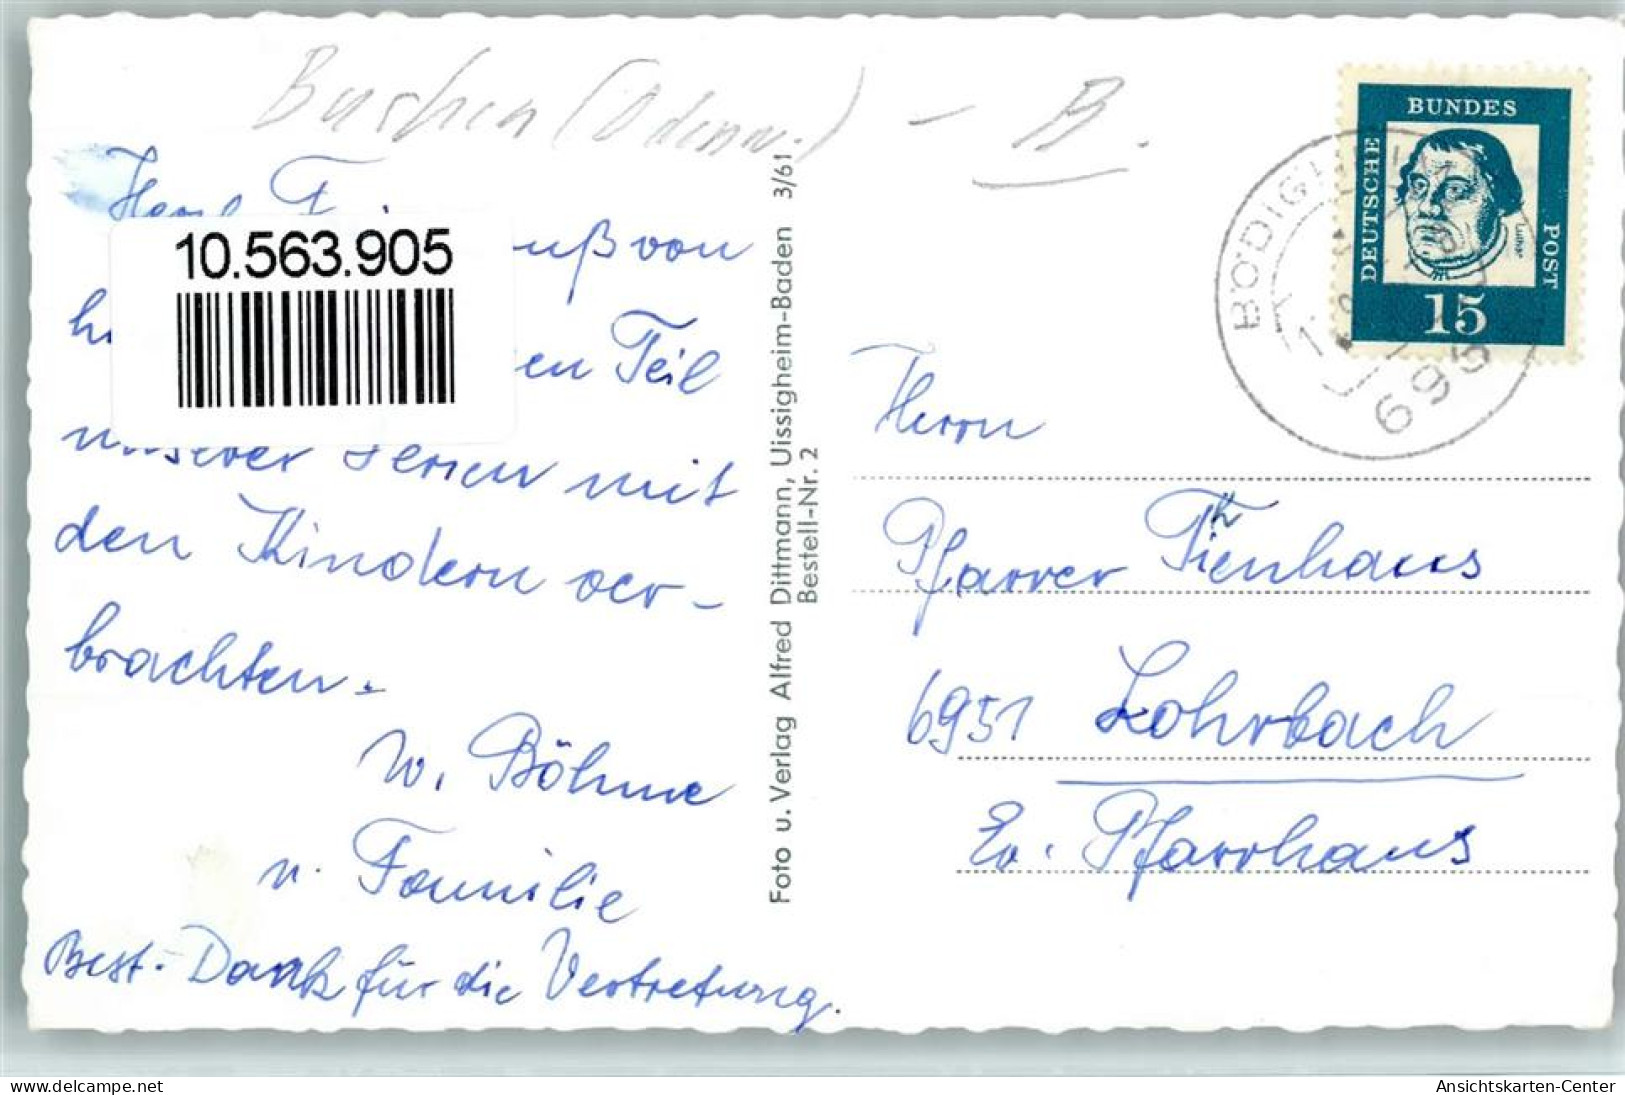 Buchen (Odenw.) - B.
Herzl.
10.563.905
uß von
en Teil
unserer Ferien mit
den Kindern ver-
brachten.
W. Böhme
u. Familie
Best. Dank für die Vertretung.
Foto u. Verlag Alfred Dittmann, Uissigheim-Baden 3/61
Bestell-Nr. 2
DEUTSCHE
BUNDES
POST
Luther
15
BÖDIGH
695
Herrn
Pfarrer Tienhaus
6951 Lohrbach
Ev. Pfarrhaus
www.delcampe.net
Ansichtskarten-Center